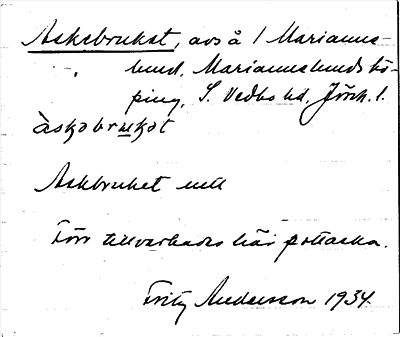 Askebruket, avs å 1 Marianne-
lund, Mariannelunds kö-
ping, S. Vedbo hd, Jönk. l.
àskəbrukət
Askbruket
Förr tillverkades här pottaska.
Fritz Andersson 1934.